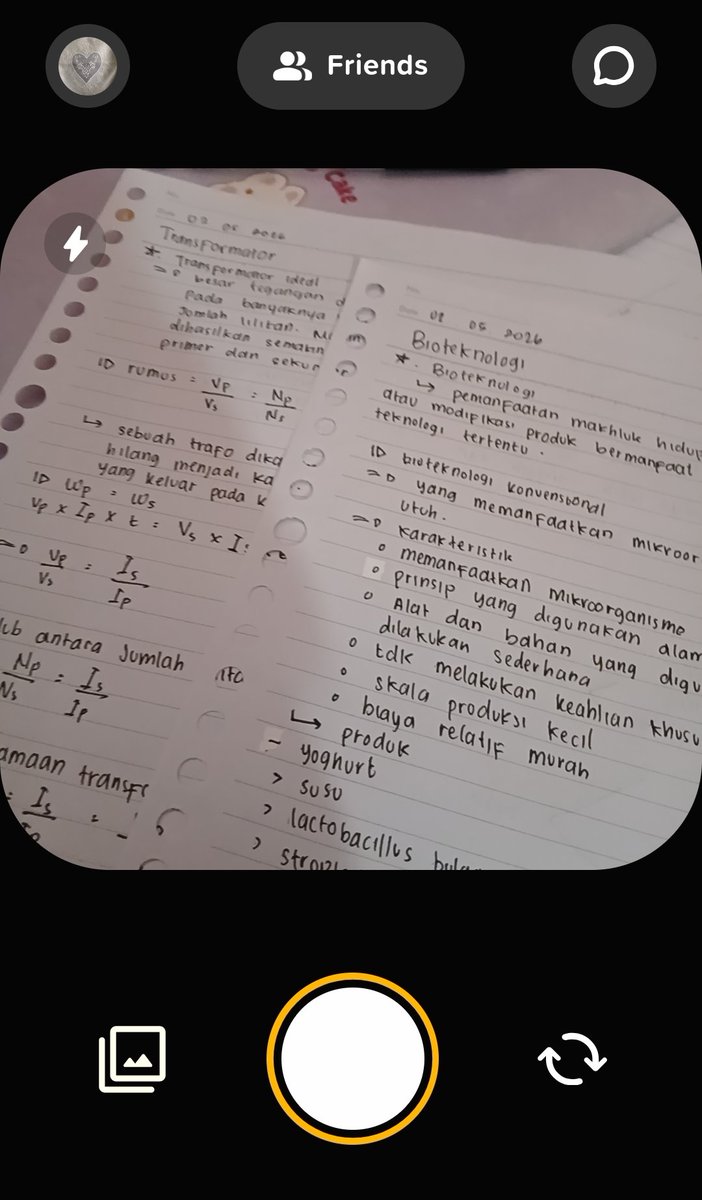 Friends
Cake
02 05 2026
Transformator
* Transformator ideal
=> besar tegangan
pada banyaknya
jumlah lilitan.
dihasilkan
primer dan
ID rumus = Vp/Vs = Np/Ns
↳ sebuah trafo
hilang menjadi
yang keluar pada
ID Wp = Ws
Vp x Ip x t = Vs x
=> Vp/Vs = Is/Ip
antara Jumlah
Np/Ns = Is/Ip
Is
02 05 2026
Bioteknologi
* Bioteknologi
↳ pemanfaatan makhluk
atau modifikasi produk bermanfaat
teknologi tertentu.
ID bioteknologi konvensional
=> yang memanfaatkan
utuh.
=> karakteristik
o memanfaatkan mikroorganisme
o prinsip yang digunakan
o Alat dan bahan yang
dilakukan sederhana
o tdk melakukan keahlian
o skala produksi kecil
o biaya relatif murah
↳ produk
- yoghurt
> susu
> lactobacillus
>